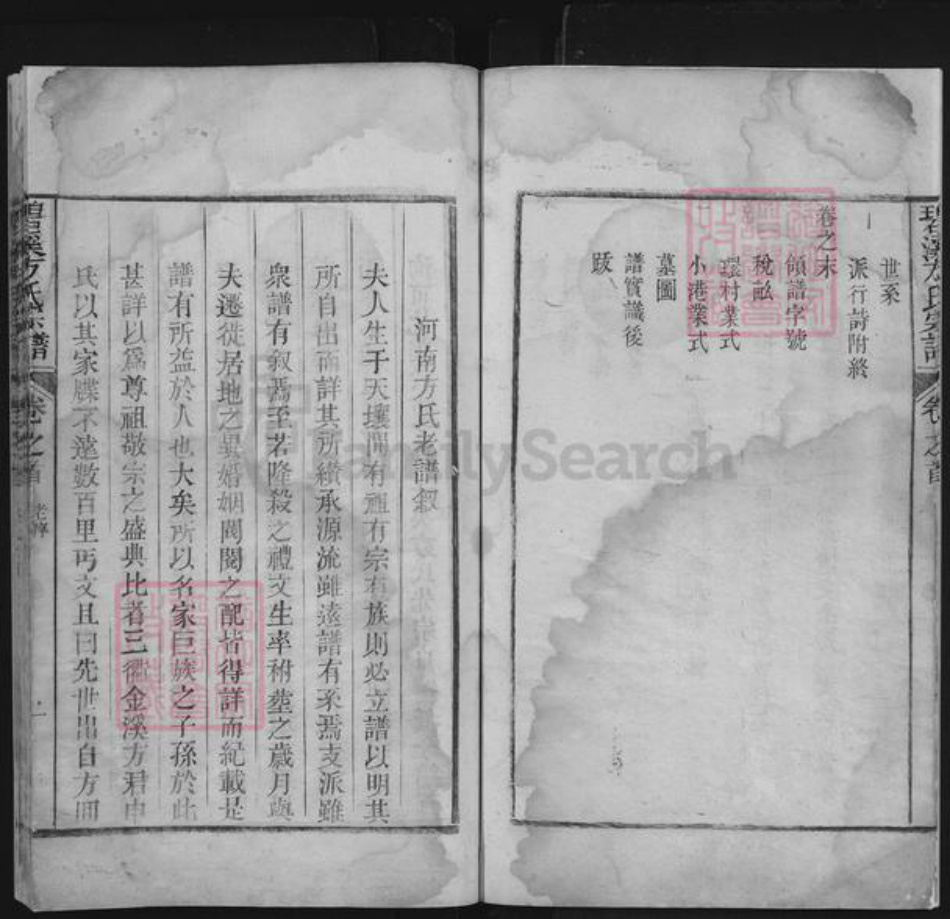 碧溪方氏宗譜
卷之首
世系
派行詩附終
卷之末
領譜字號
稅畝
環村業式
小港業式
墓圖
譜實識後
跋
河南方氏老譜叙
夫人生于天壤間有祖有宗有族則必立譜以明其
所自出而詳其所纘承源流雖遠譜有系焉支派雖
衆譜有叙焉至若隆殺之禮文生率祔塟之歲月與
夫遷徙居地之異婚姻閥閱之配皆得詳而紀載是
譜有所益於人也大矣所以名家巨族之子孫於此
甚詳以爲尊祖敬宗之盛典比者三衢金溪方君申
氏以其家牒不遠數百里丐文且曰先世出自方回
碧溪方氏宗譜
卷之首
老序
一
FamilySearch